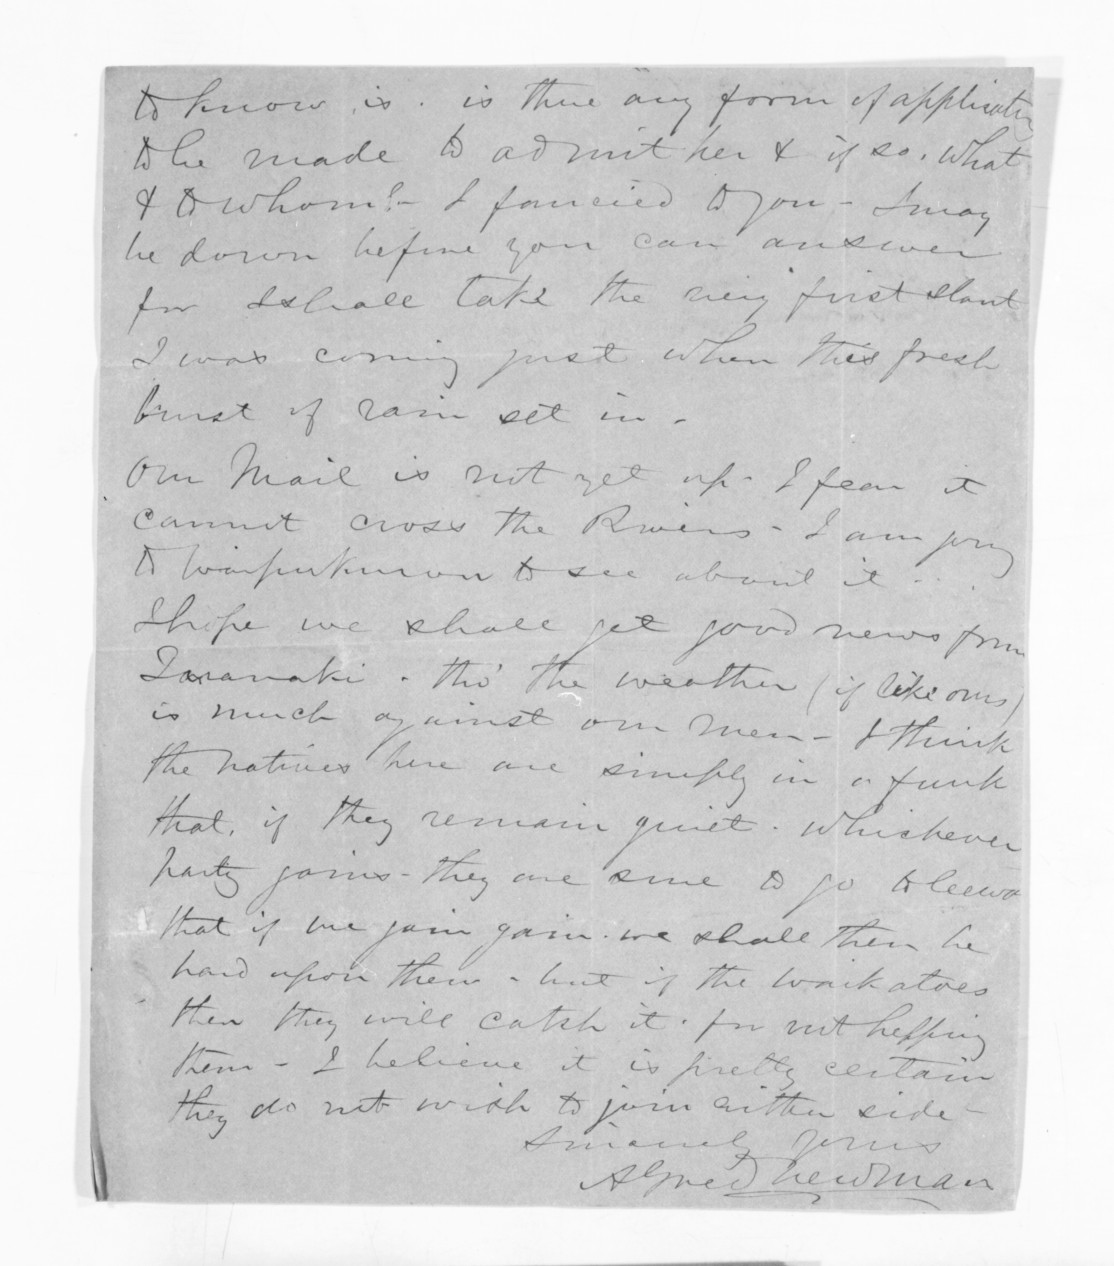 to know is. is there any form of application
to be made to admit her & if so. What
& to whom?- I fancied to you - I may
be down before you can answer
for I shall take the very first slant
I was coming just when this fresh
burst of rain set in -
Our Mail is not yet up - I fear it
cannot cross the Rivers - I am going
to Waipukurau to see about it ..
I hope we shall get good news from
Taranaki - tho' the weather (if like ours)
is much against our men - I think
the natives here are simply in a funk
that, if they remain quiet. Whichever
party gains - they are sure to go to leewd
that if we join gain. we shall then be
hard upon them - but if the Waikatoes
then they will catch it. for not helping
them - I believe it is pretty certain
they do not wish to join either side -
Sincerely yours
Alfred Newman